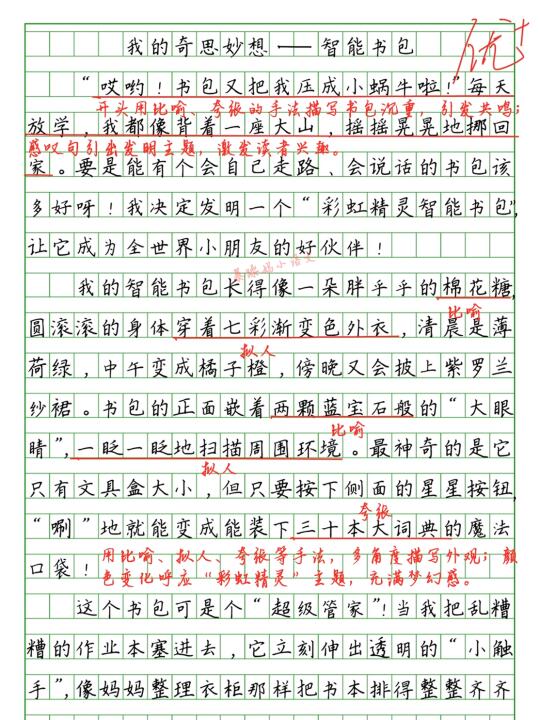 我的奇思妙想——智能书包
优+
“哎哟！书包又把我压成小蜗牛啦！”每天
开头用比喻、夸张的手法描写书包沉重，引发共鸣；
放学，我都像背着一座大山，摇摇晃晃地挪回
感叹句引出发明主题，激发读者兴趣。
家。要是能有个会自己走路、会说话的书包该
多好呀！我决定发明一个“彩虹精灵智能书包”，
让它成为全世界小朋友的好伙伴！
我的智能书包长得像一朵胖乎乎的棉花糖，
比喻
圆滚滚的身体穿着七彩渐变色外衣，清晨是薄
拟人
荷绿，中午变成橘子橙，傍晚又会披上紫罗兰
纱裙。书包的正面嵌着两颗蓝宝石般的“大眼
比喻
睛”，一眨一眨地扫描周围环境。最神奇的是它
拟人
只有文具盒大小，但只要按下侧面的星星按钮，
夸张
“唰”地就能变成能装下三十本大词典的魔法
口袋！
用比喻、拟人、夸张等手法，多角度描写外观；颜
色变化呼应“彩虹精灵”主题，充满梦幻感。
这个书包可是个“超级管家”！当我把乱糟
糟的作业本塞进去，它立刻伸出透明的“小触
手”，像妈妈整理衣柜那样把书本排得整整齐齐